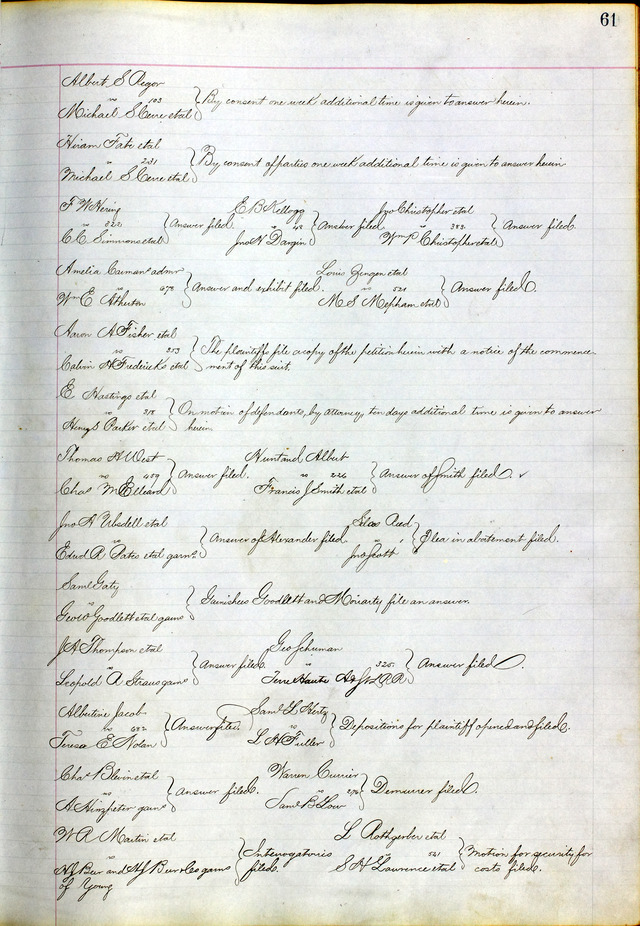 61
Albert S Regor
vs 103
Michael S Cerre etal
By consent one week additional time is given to answer herein.
Hiram Tate etal
vs 231
Michael S Cerre etal
By consent of parties one week additional time is given to answer herein
F W Hering
vs
C. C. Simmons etal
Answer filed.
E B Kellogg
vs 48
Jno N Dargin
Answer filed
Jno Christopher etal
vs 383
Wm P Christopher etal
Answer filed.
Amelia admr
vs 478
Wm E Atherton
Answer and exhibit filed.
Louis Gengen etal
vs 521
M. S. Mepham etal
Answer filed.
Aaron A Fisher etal
vs 253
Calvin H Fredericks etal
The plaintiffs file a copy of the petition herein with a notice of the commence-
ment of this suit.
E Hastings etal
vs 318
Henry S Parker etal
On motion of defendants, by attorney, ten days additional time is given to answer
herein
Thomas H West
vs 409
Chas M Elleard
Answer filed.
Hunt and Albert
vs 226
Francis J Smith etal
Answer of Smith filed.
Jno A Ubsdell etal
vs
Edwd R Pates etal garns
Answer of Alexander filed.
Silas Reed
vs
Jno Scott
Plea in abatement filed.
Saml Gaty
vs
Geo W Goodlett etal garns
Garnishees Goodlett and Moriarty file an answer.
J A Thompson etal
vs
Leopold A Straus garns
Answer filed.
Geo Schuman
vs 325
Terre Haute A & St L R R
Answer filed.
Albertine Jacob
vs 682
Teresa E Nolan
Answer filed.
Saml L Hertz
vs
L H Fuller
Depositions for plaintiff opened and filed.
Chas Blevin etal
vs
A Hinzpeter garns
Answer filed.
Warren Currier
vs
Saml B Low
Demurrer filed.
W R Martin etal
vs
A J Burr and A J Burr & Co garns
of Young
Interrogatories
filed.
L Rothgerber etal
vs 521
S H Lawrence etal
Motion for security for
costs filed.